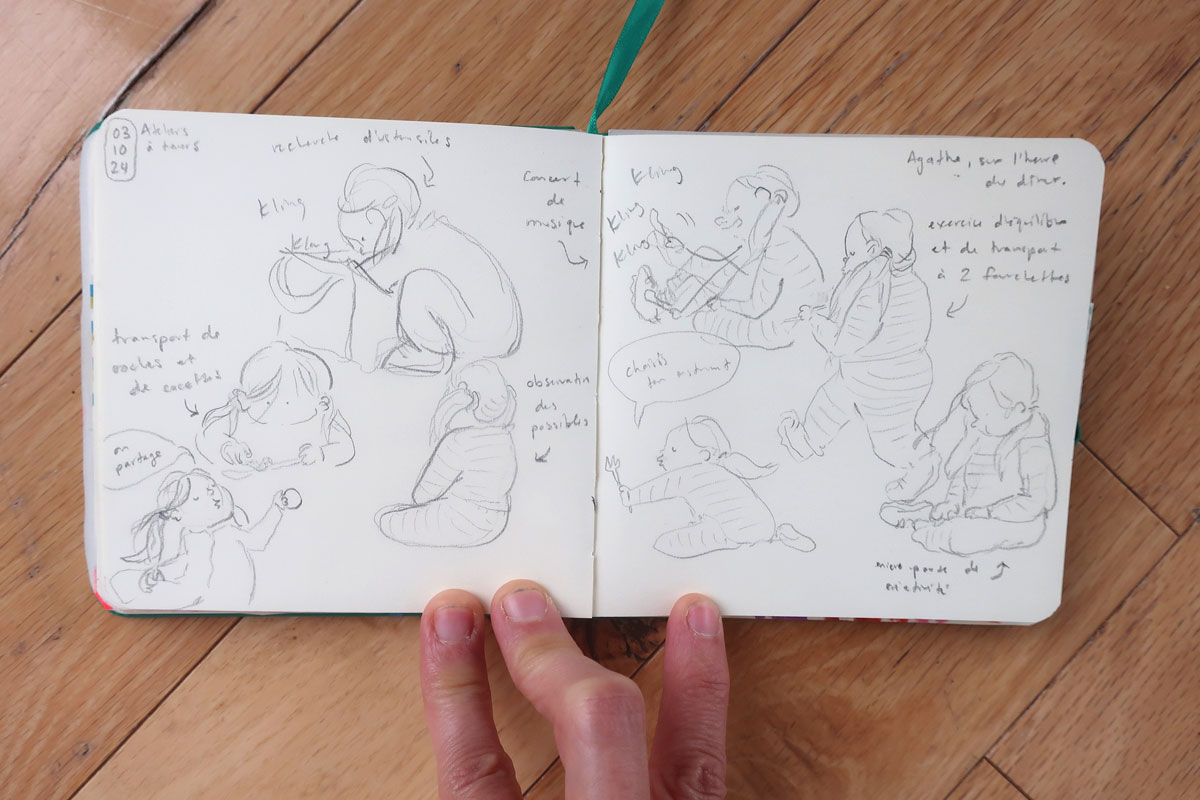 03
10
24
Ateliers
à
recherche d'ustensiles
Kling
Kling
concert
de
musique
transport de
et
de cocottes
on
partage
observation
des
possibles
Kling
Kling
Kling
Agathe, sur l'heure
du dîner.
exercice d'équilibre
et de transport
à 2 fourchettes
choisis
ton instrument
micro pause de
créativité